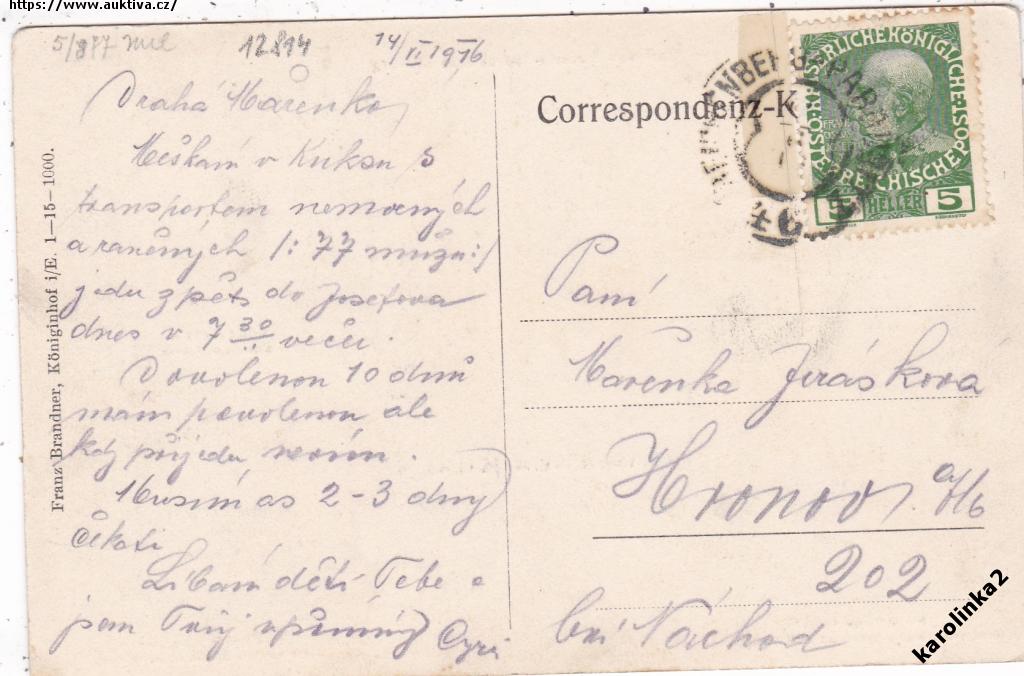 https://www.auktiva.cz/
5/877
12894
14/II 1916
Drahá Mařenko,
Meškám v Kuksu s
transportem nemocných
a raněných /: 77 mužů :/
jedu zpět do Josefova
dnes v 7 30 večer.
Dovolenou 10 dnů
mám povolenou ale
kdy přijedu nevím.
Musím as 2-3 dny
čekati.
Líbám děti Tebe a
jsem Tvůj upřímný
Franz Brandner, Königinhof i/E. 1—15—1000.
Correspondenz-K
KAISERLICHE KÖNIGLICHE
ÖSTERREICHISCHE POST
5 HELLER 5
Paní
Mařenka Jirásková
Hronov a/M
202
bei Náchod
karolinka2